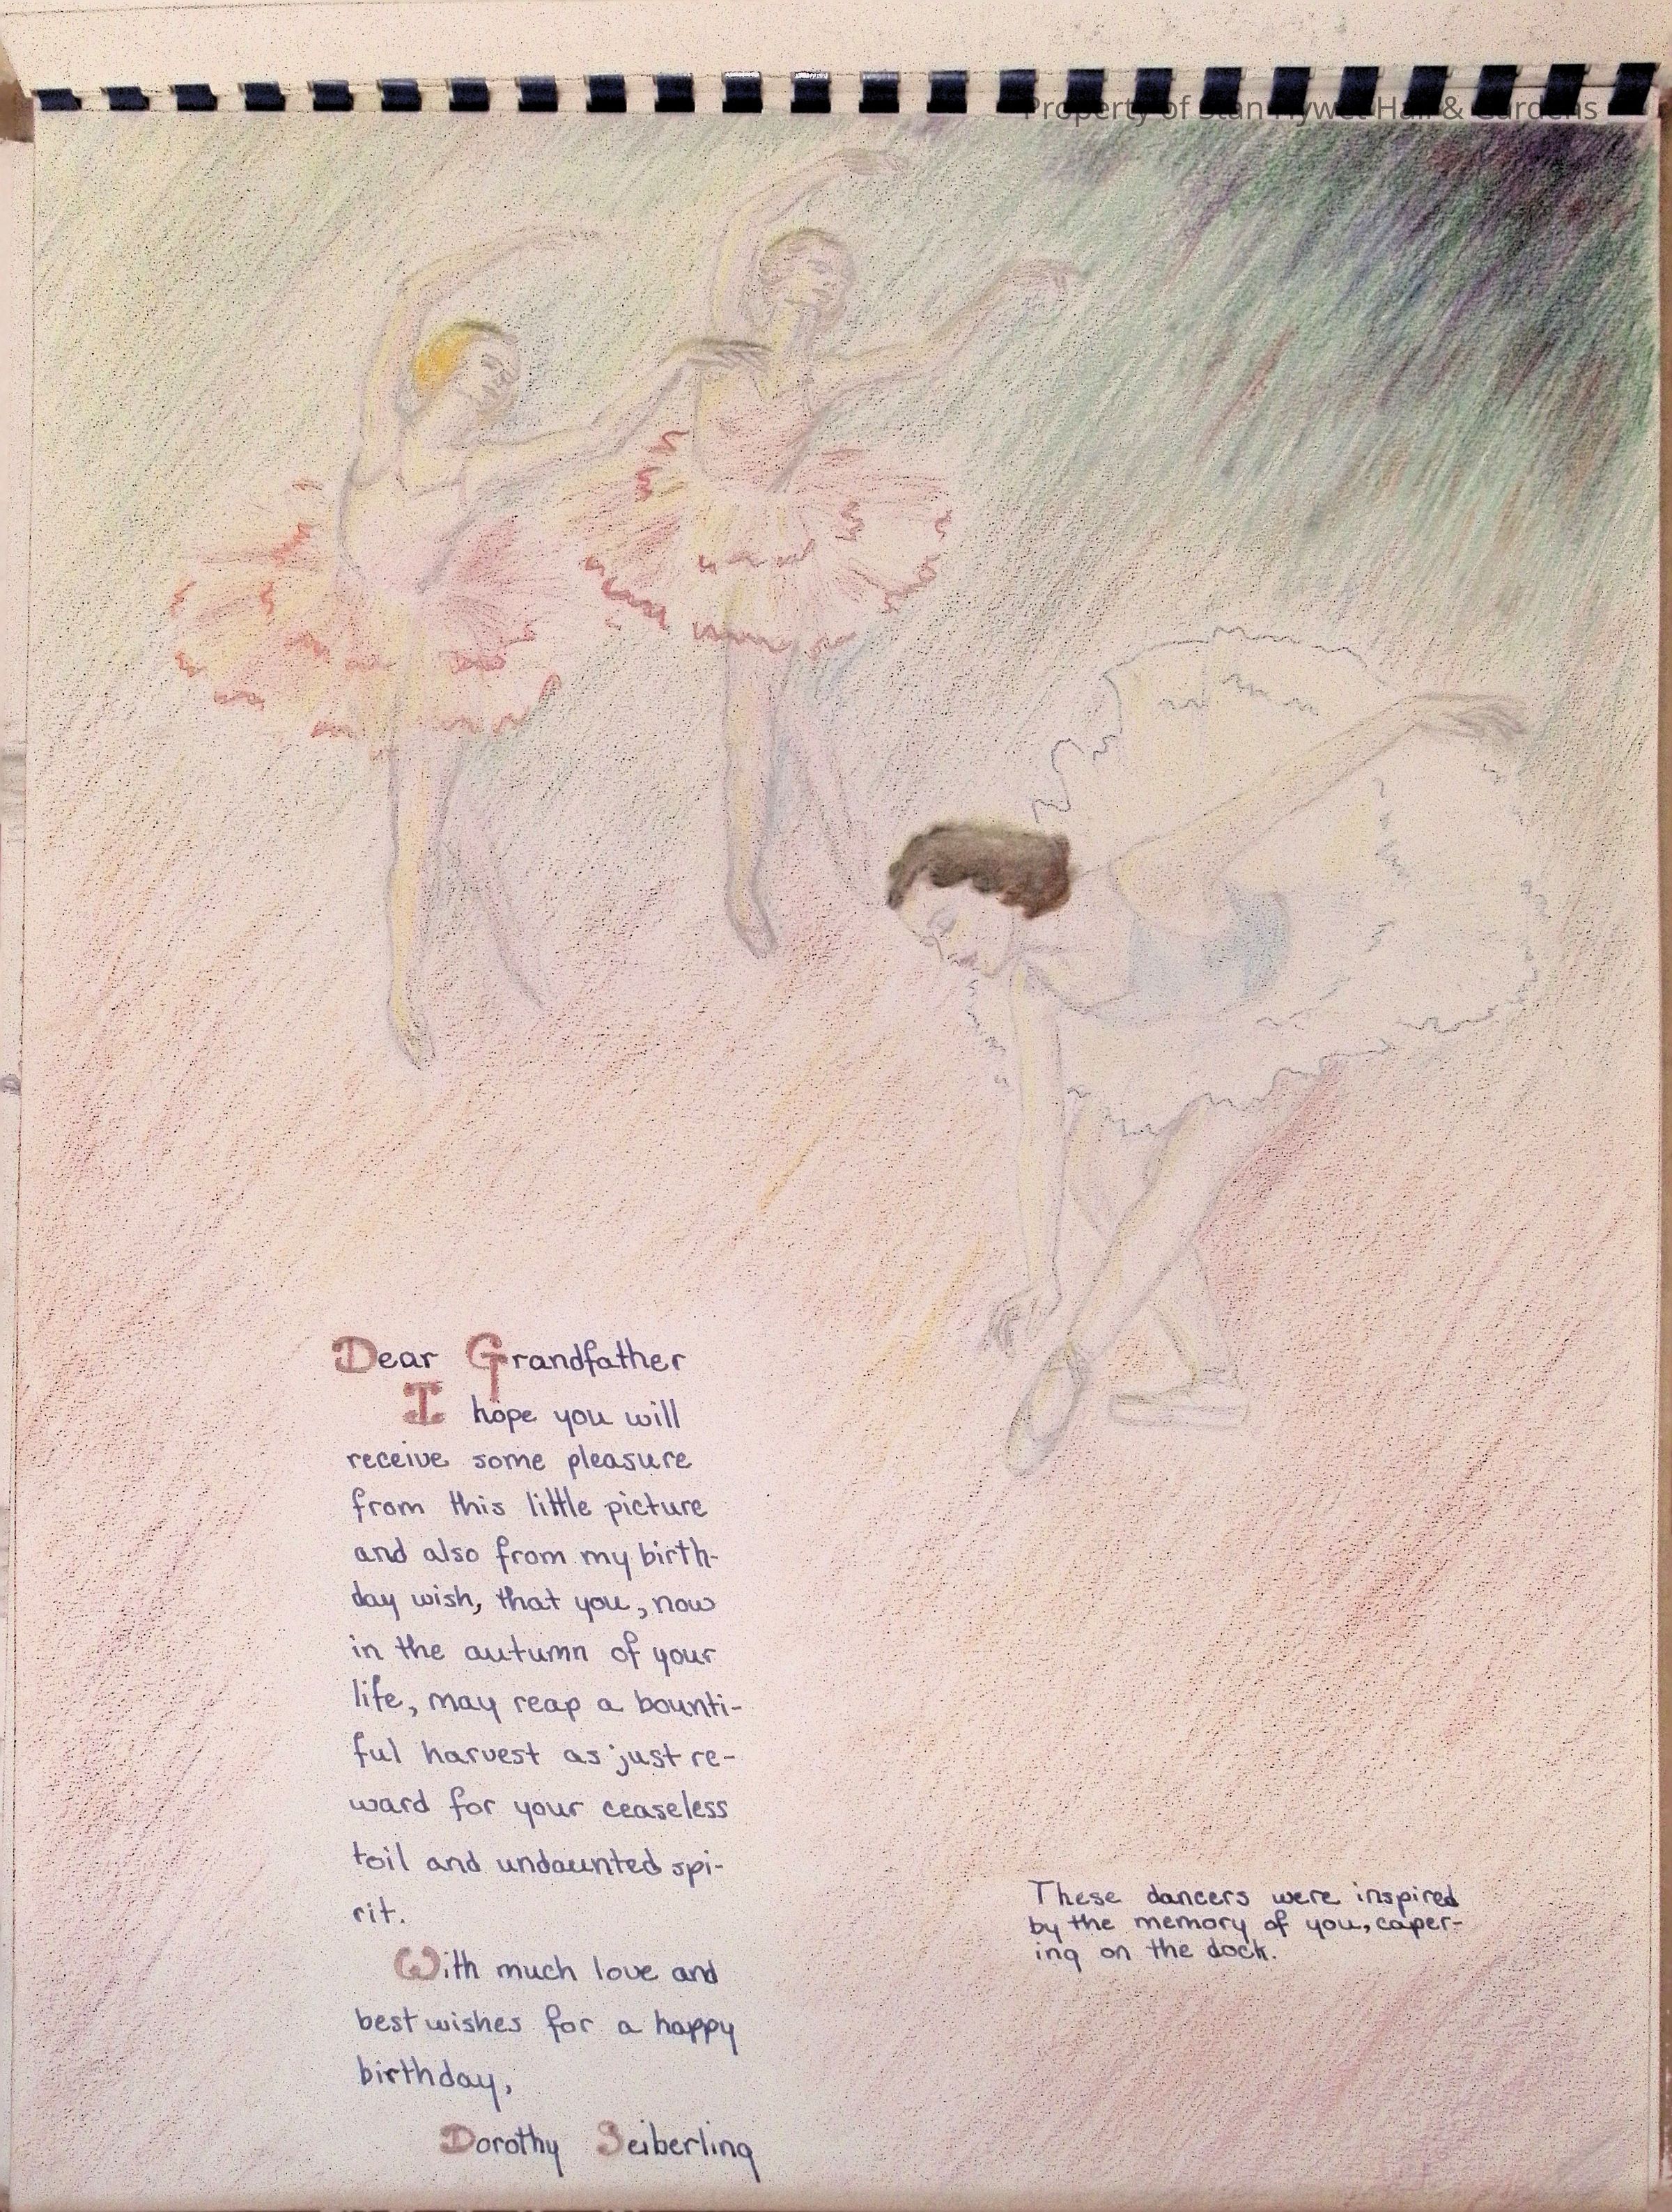 Property of Stan Hywet Hall & Gardens
Dear Grandfather
I hope you will
receive some pleasure
from this little picture
and also from my birth-
day wish, that you, now
in the autumn of your
life, may reap a bounti-
ful harvest as just re-
ward for your ceaseless
toil and undaunted spi-
rit.
With much love and
best wishes for a happy
birthday,
Dorothy Seiberling
These dancers were inspired
by the memory of you, caper-
ing on the dock.